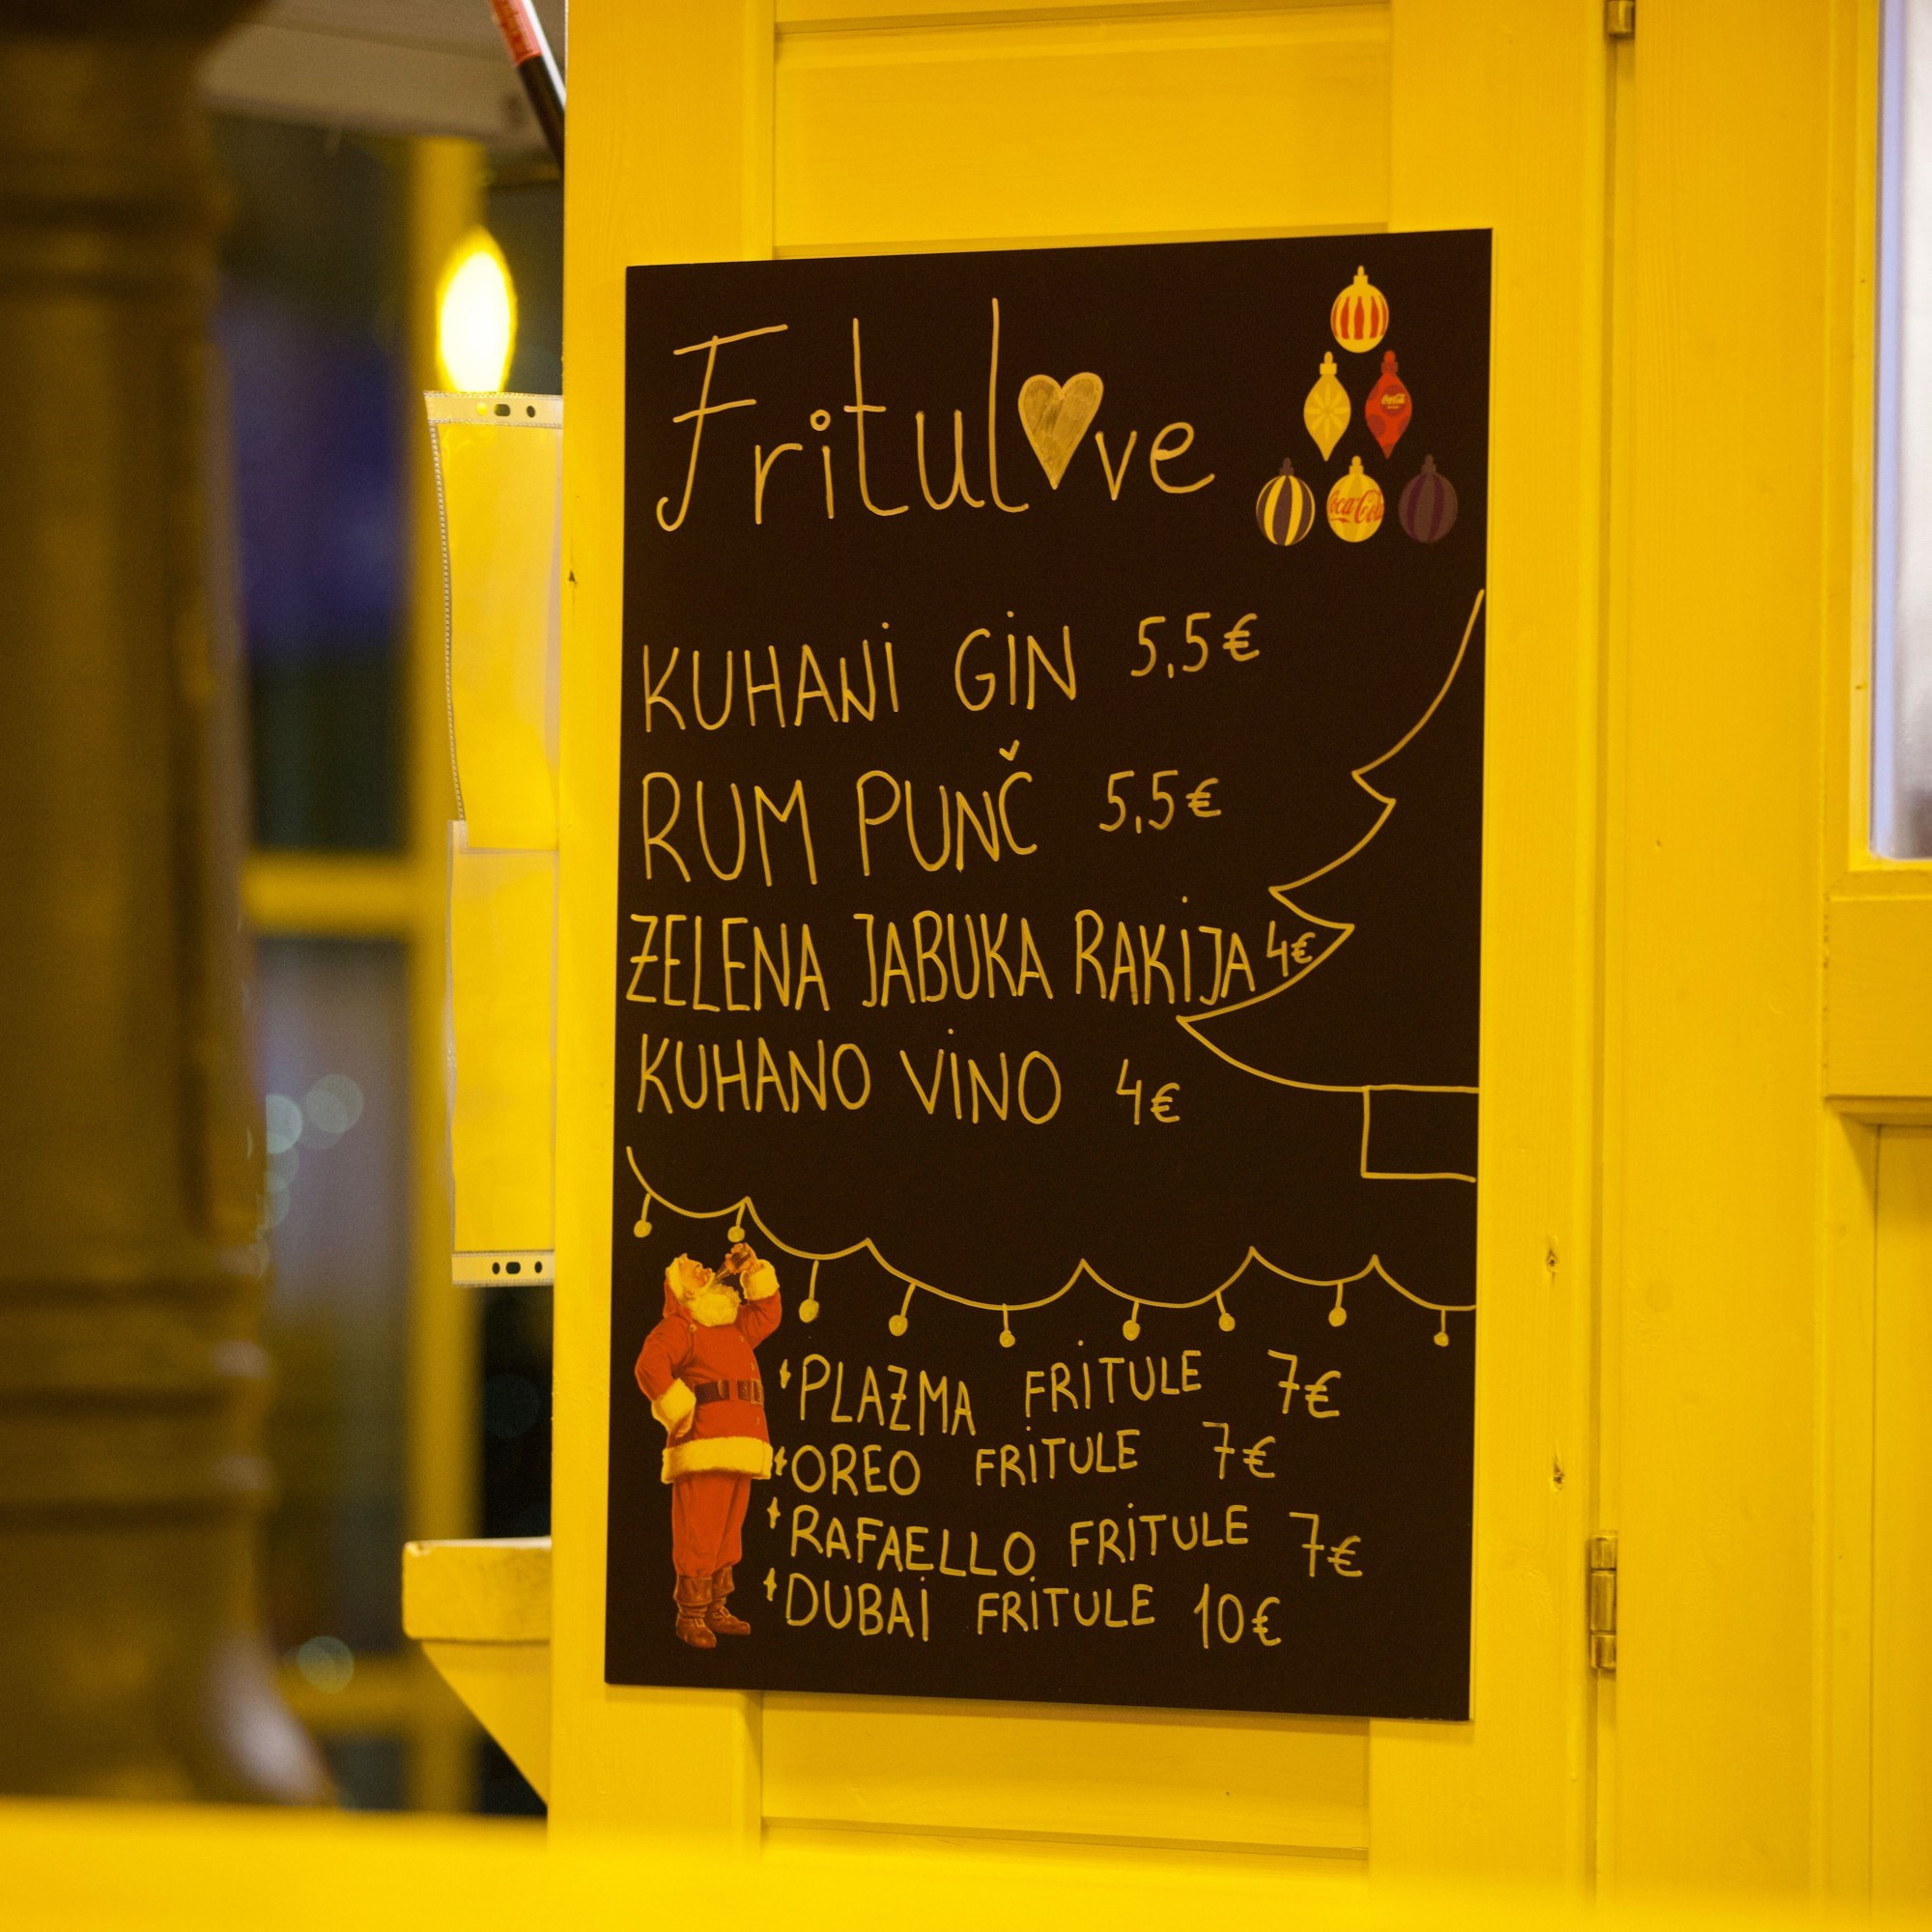 Fritul♥ve
Coca-Cola
Coca-Cola
KUHANI GIN 5,5€
RUM PUNČ 5,5€
ZELENA JABUKA RAKIJA 4€
KUHANO VINO 4€
PLAZMA FRITULE 7€
OREO FRITULE 7€
RAFAELLO FRITULE 7€
DUBAI FRITULE 10€